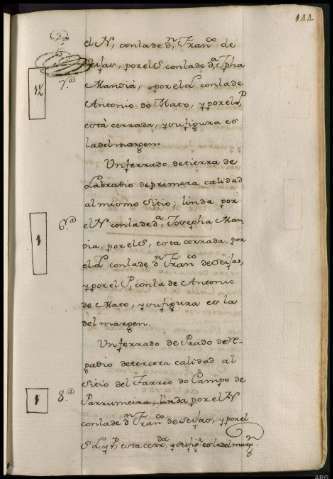 122
el N, con la de dn. Franco. de
Seijas, por el S con la de da. Jpha
Mandiá, por el L con la de
Antonio do Mato, y por el P
está cerrada, y su figura es
la del margen.
Un ferrado de tierra de
Labradio de primera calidad
al mismo Sitio, linda por
el N con la de da. Josepha Man
dia, por el S, esta cerrada, por
el L con la de dn. Franco. de Seijas,
y por el P. con la de Antonio
de Mato, y su figura es la
del margen.
Un ferrado de Prado de
de tercera calidad al
Sitio del Campo de
linda por el N
con la de dn. Franco. de Seijas, y por el
S L y P, esta cerrda. y su figa. es la del margn.
12
7.
1
6.
1
8.